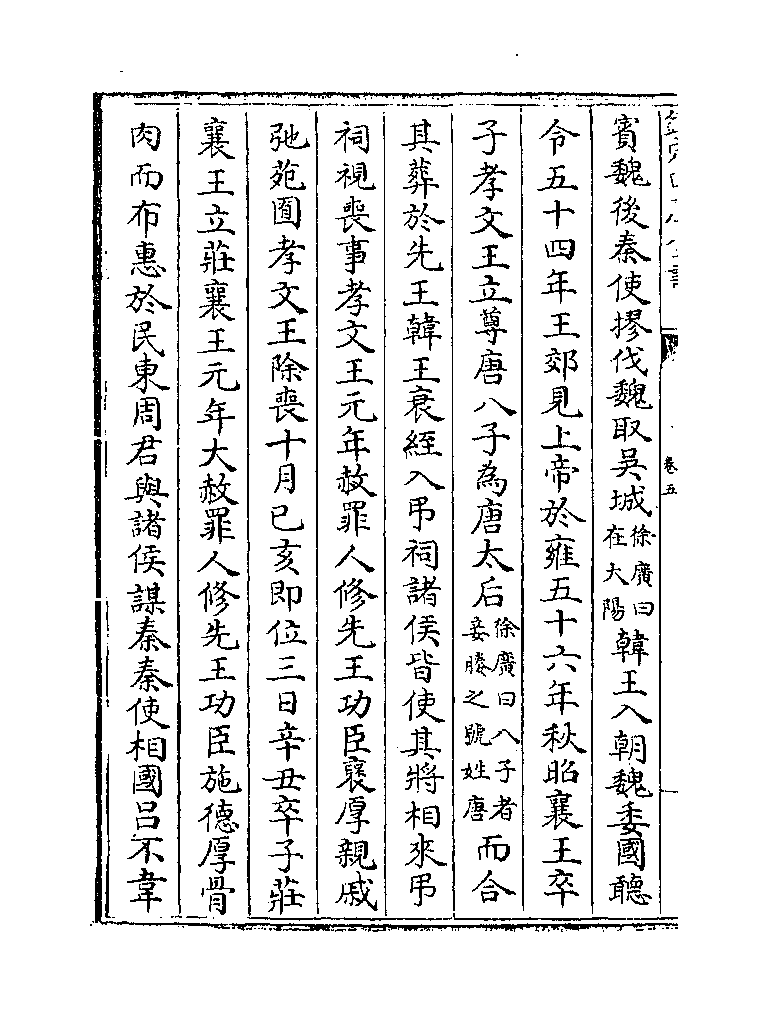 賔魏後秦使摎伐魏取吳城徐廣曰在大陽韓王入朝魏委國聽
令五十四年王郊見上帝於雍五十六年秋昭襄王卒
子孝文王立尊唐八子為唐太后徐廣曰八子者妾媵之號姓唐而合
其葬於先王韓王衰絰入弔祠諸侯皆使其將相來弔
祠視喪事孝文王元年赦罪人修先王功臣襃厚親戚
弛苑囿孝文王除喪十月己亥即位三日辛丑卒子莊
襄王立莊襄王元年大赦罪人修先王功臣施德厚骨
肉而布惠於民東周君與諸侯謀秦秦使相國吕不韋
卷五